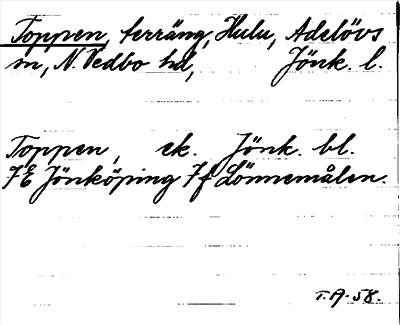 Toppen, terräng, Hulu, Adelövs
sn, N. Vedbo hd, Jönk. l.
Toppen, ek. Jönk. bl.
7E Jönköping 7f Lönnemålen.
T.A-58.